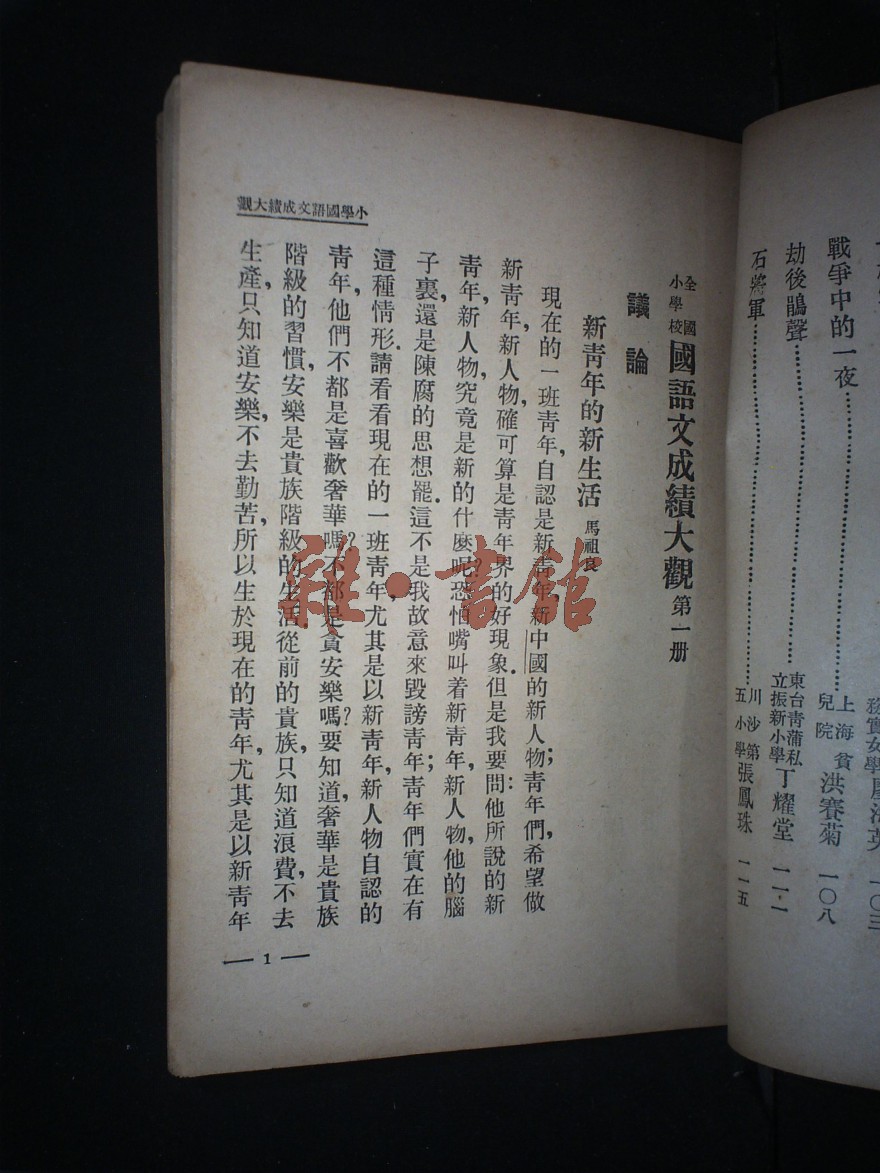 戰爭中的一夜 上海貧兒院 洪賽菊 一〇八
劫後鵑聲 東台青蒲私立振新小學 丁耀堂 一一一
石將軍 川沙第五小學 張鳳珠 一一五
全國小學校 國語文成績大觀 第一册
議論
新青年的新生活 馬祖良
現在的一班青年,自認是新青年,新中國的新人物;青年們,希望做
新青年,新人物,確可算是青年界的好現象.但是我要問他所說的新
青年,新人物,究竟是新的什麽呢?恐怕嘴叫着新青年,新人物,他的腦
子裏,還是陳腐的思想罷.這不是我故意來毀謗青年;青年們實在有
這種情形.請看看現在的一班青年,尤其是以新青年,新人物自認的
青年,他們不都是喜歡奢華嗎?不都是貪安樂嗎?要知道,奢華是貴族
階級的習慣,安樂是貴族階級的生活.從前的貴族,只知道浪費,不去
生產,只知道安樂,不去勤苦,所以生於現在的青年,尤其是以新青年
小學國語文成績大觀
— 1 —
雜·書館